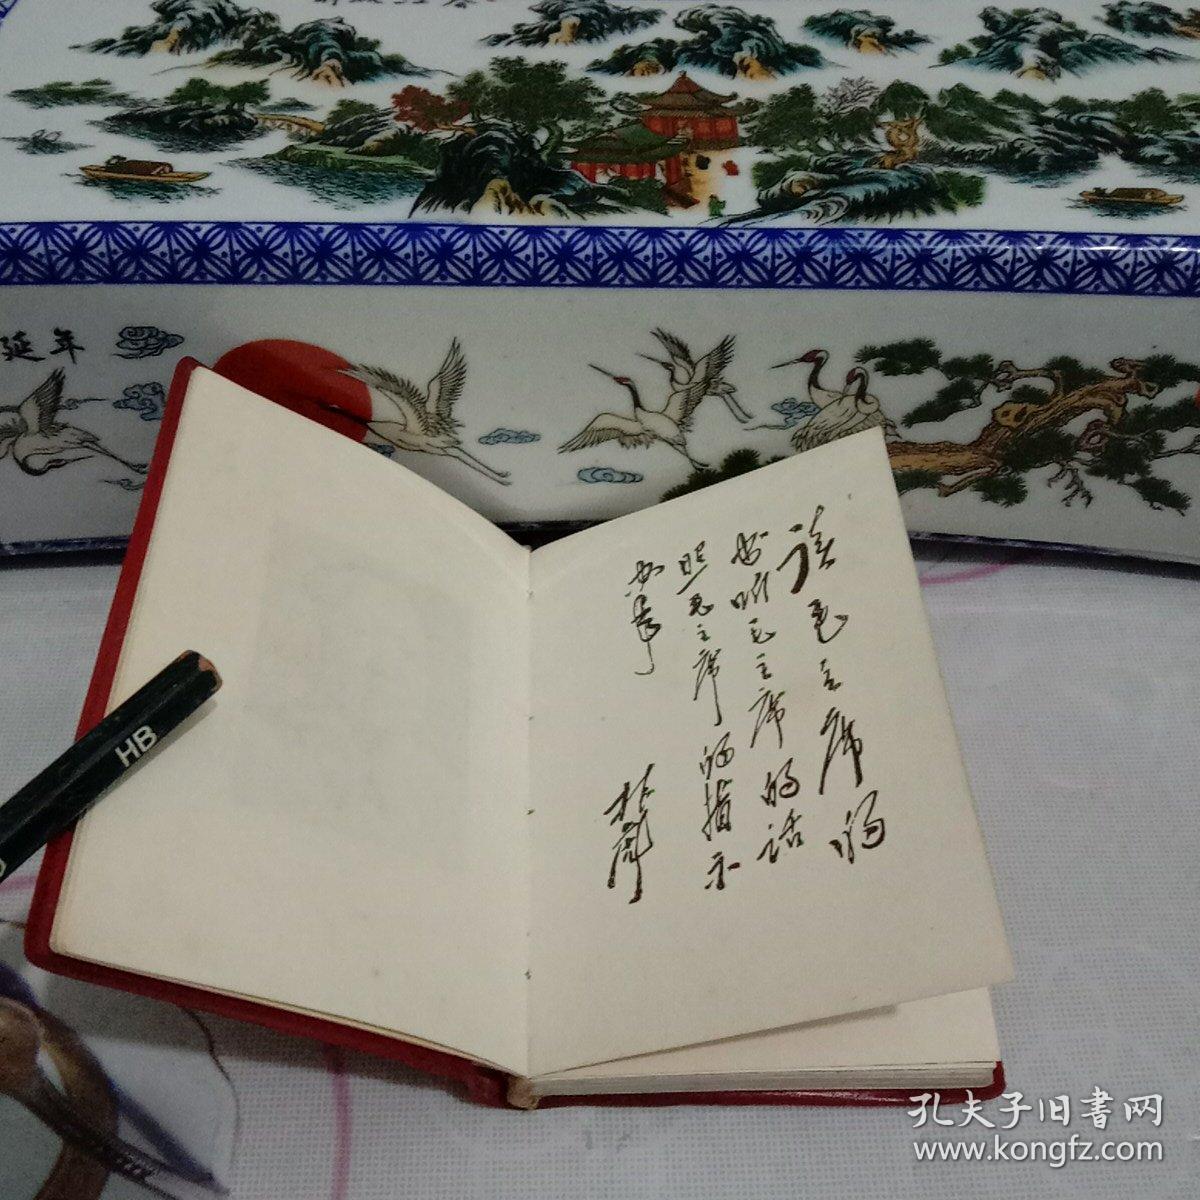 延年
读毛主席的
书听毛主席的话
照毛主席的指示
办事
林彪
HB
孔夫子旧書网
www.kongfz.com